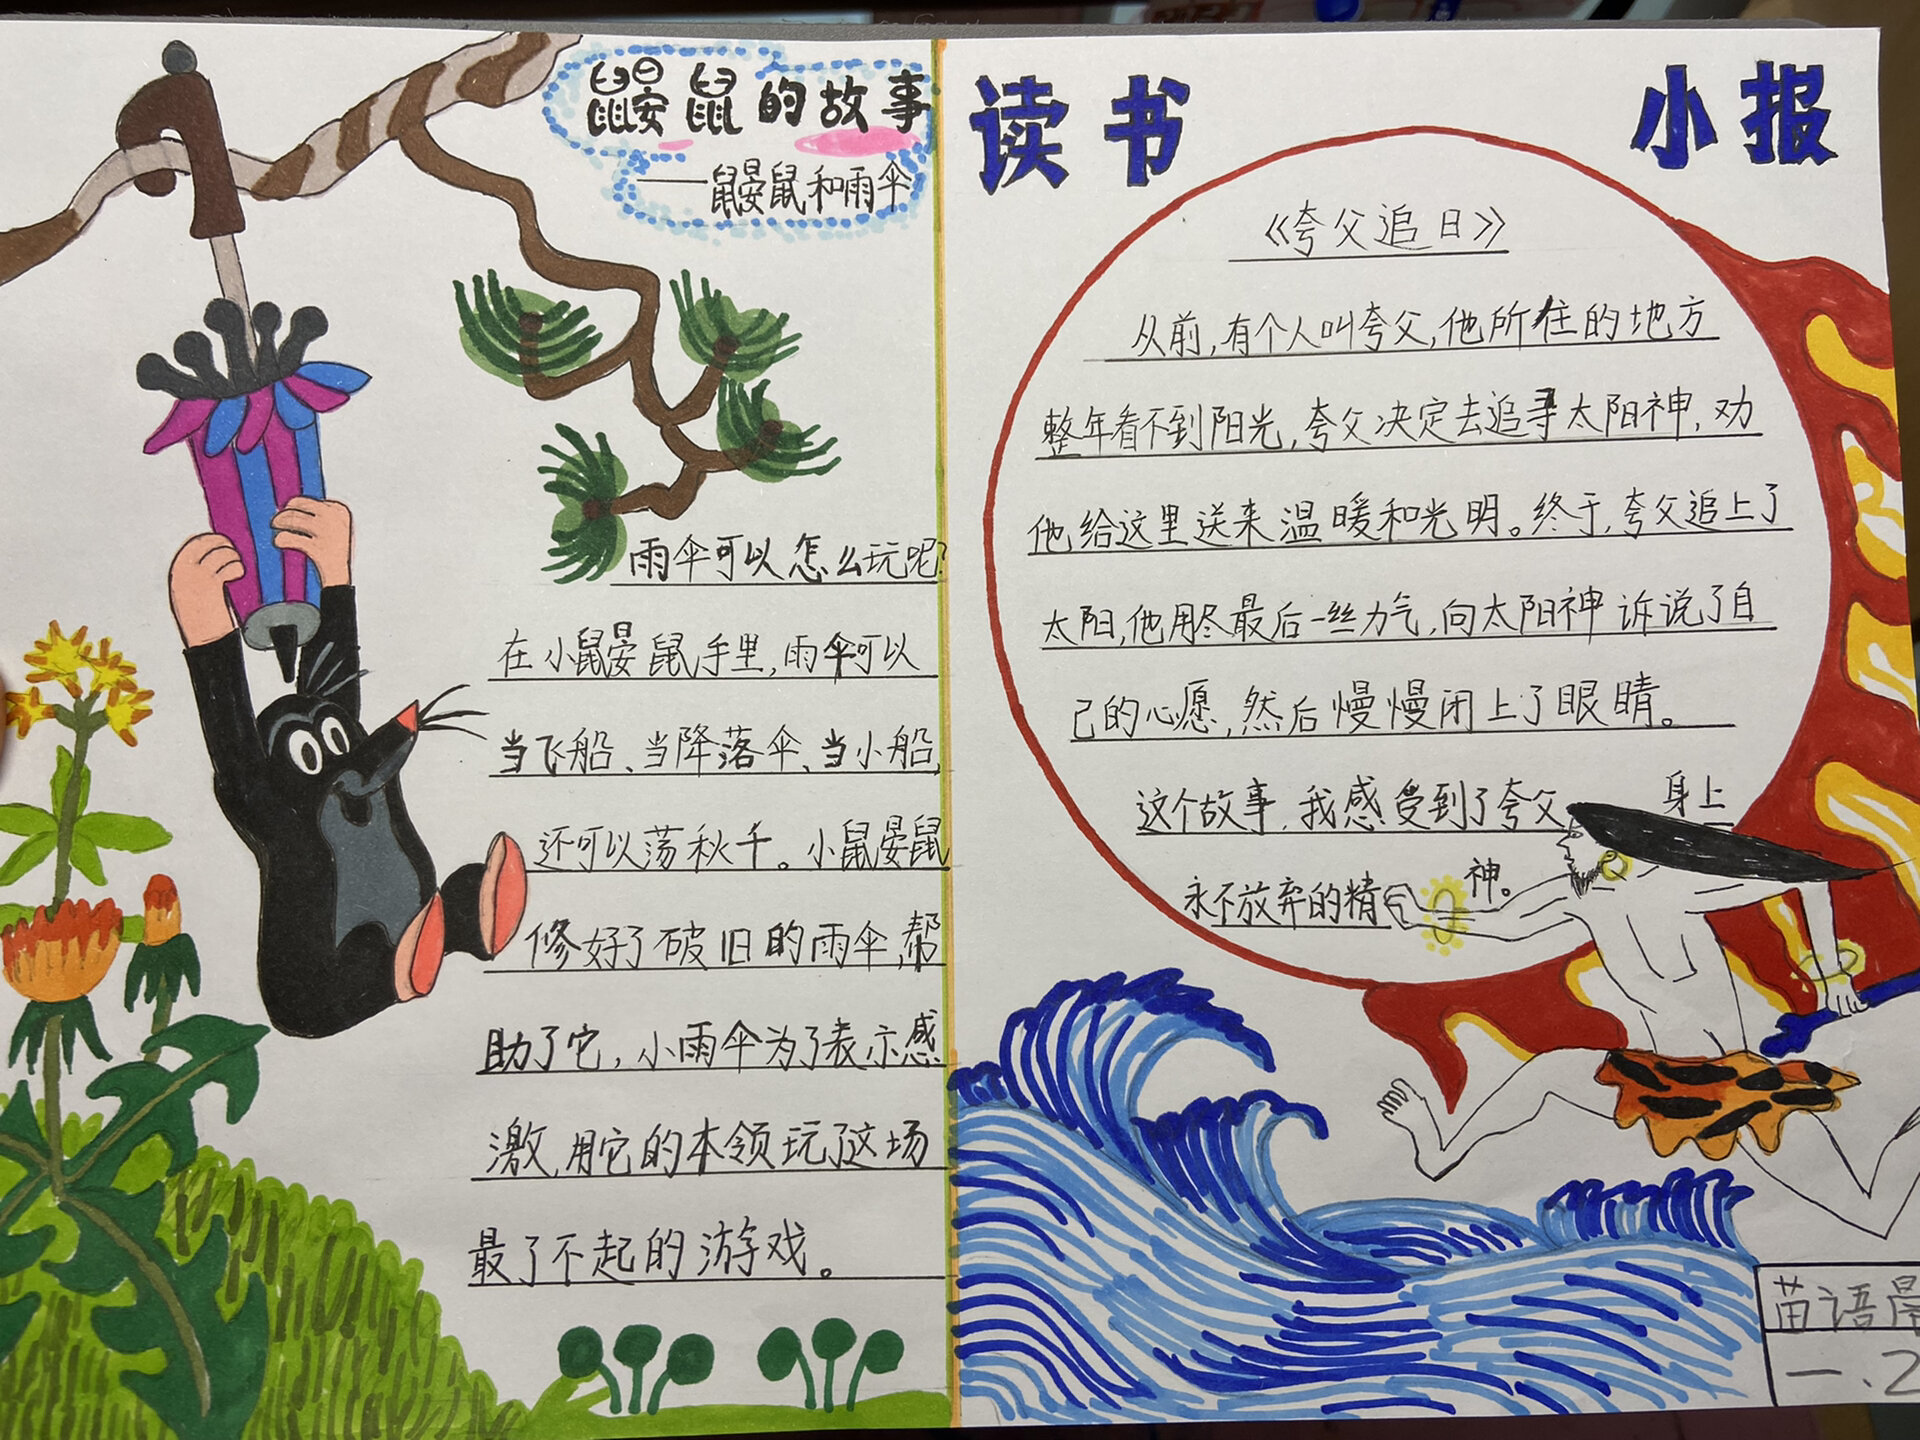 鼹鼠的故事
——鼹鼠和雨伞
雨伞可以怎么玩呢?
在小鼹鼠手里,雨伞可以
当飞船、当降落伞、当小船,
还可以荡秋千。小鼹鼠
修好了破旧的雨伞,帮
助了它,小雨伞为了表示感
激,用它的本领玩了这场
最了不起的游戏。
读书 小报
《夸父追日》
从前,有个人叫夸父,他所住的地方
整年看不到阳光,夸父决定去追寻太阳神,劝
他给这里送来温暖和光明。终于,夸父追上了
太阳,他用尽最后一丝力气,向太阳神诉说了自
己的心愿,然后慢慢闭上了眼睛。
这个故事,我感受到了夸父身上
永不放弃的精神。
苗语
一.2